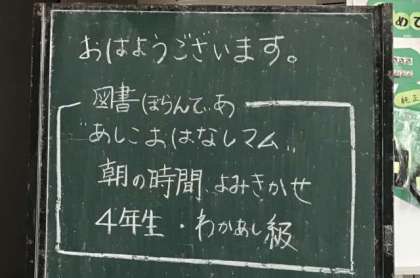 おはようございます。
図書ぼらんてぃあ
"あしこおはなしマム"
朝の時間、よみきかせ
4年生・わかあし級
めで